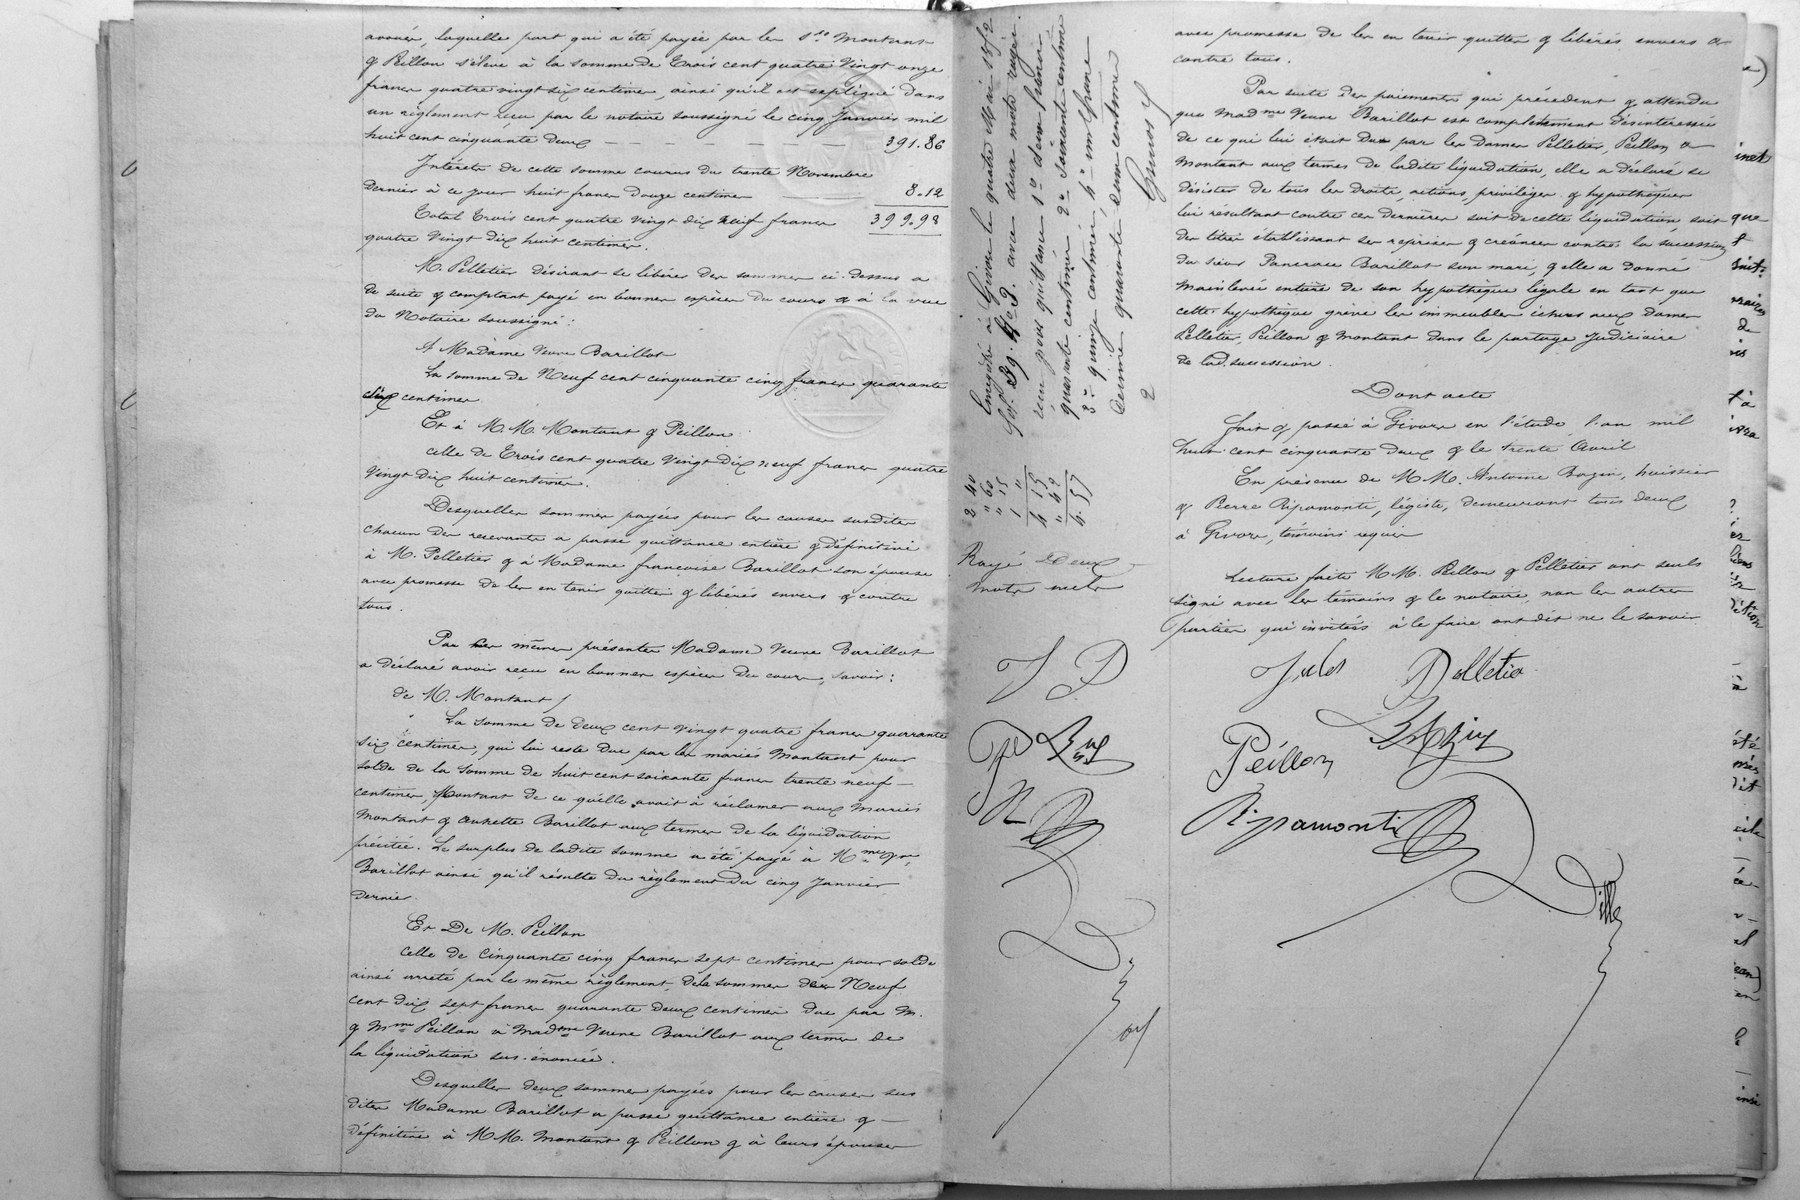 avouér, laquelle part qui a été payée par les srs Montant
& Peillon s'élève à la somme de Trois cent quatre vingt onze
francs quatre vingt six centimes, ainsi qu'il est expliqué dans
un règlement reçu par le notaire soussigné le cinq Janvier mil
huit cent cinquante deux 391.86
Intérêts de cette somme courus du trente Novembre
dernier à ce jour huit francs Douze centimes 8.12
Total Trois cent quatre vingt dix neuf francs 399.98
quatre vingt dix huit centimes.
M. Pelletier désirant se libérer des sommes ci-dessus a
de suite & comptant payé en bonnes espèces du cours & à la vue
du Notaire soussigné :
A Madame veuve Barillot
La somme de Neuf cent cinquante cinq francs quarante
cinq centimes
Et à M.M. Montant & Peillon
celle de Trois cent quatre vingt dix neuf francs quatre
vingt dix huit centimes.
Desquelles sommes payées pour les causes susdites
chacun des recevants a passé quittance entière & définitive
à M. Pelletier & à Madame françoise Barillot son épouse
avec promesse de les en tenir quittes & libérés envers & contre
tous.
Par mêmes présentes Madame Veuve Barillot
a déclaré avoir reçu en bonnes espèces du cours, savoir :
de M. Montant /
La somme de deux cent vingt quatre francs quarante
six centimes, qui lui reste due par les mariés Montant pour
solde de la somme de huit cent soixante francs trente neuf
centimes Montant de ce qu'elle avait à réclamer aux mariés
Montant & Barillot aux termes de la liquidation
précitée. Le surplus de ladite somme a été payé à Mme Vve
Barillot ainsi qu'il résulte du règlement du cinq Janvier
dernier.
Et De M. Peillon
celle de Cinquante cinq francs sept centimes pour solde
ainsi arrêté par le même règlement, de la somme de Neuf
cent dix sept francs quarante deux centimes due par M.
& Mme Peillon à Madme Veuve Barillot aux termes de
la liquidation sus-énoncée.
Desquelles deux sommes payées pour les causes sus
dites Madame Barillot a passé quittance entière &
définitive à M.M. Montant & Peillon & à leurs épouses
Enregistré à Givors le quatre Mai 1852
fol. 39. Ho 3. avec deux mots rayés.
reçu pour quittance 1° deux francs
quarante centimes 2° soixante centimes
3° quinze centimes, 4° un franc
décime quarante deux centimes
2 40
" 60
" 15
1 "
4 15
" 42
4.57
Rayé deux
mots nuls
J P
avec promesse de les en tenir quittes & libérés envers &
contre tous.
Par suite des paiements qui précèdent & attendu
que Madme Veuve Barillot est complètement désintéressée
de ce qui lui était Du par les Dames Pelletier, Peillon &
Montant aux termes de ladite liquidation, elle a déclaré se
désister de tous les droits, actions, privilèges & hypothèques
lui résultant contre ces dernières soit de cette liquidation, soit
des titres établissant ses reprises & créances contre la succession
du sieur Pancrace Barillot son mari, & elle a donné
mainlevée entière de son hypothèque légale en tant que
cette hypothèque grève les immeubles échus aux Dames
Pelletier, Peillon & Montant dans le partage Judiciaire
de lad. succession.
Dont acte
fait & passé à Givors en l'étude, l'an mil
huit cent cinquante deux & le trente Avril
En présence de M.M. Antoine Bazin, huissier
& Pierre Ripamonti, légiste, demeurant tous deux
à Givors, témoins requis
Lecture faite M.M. Peillon & Pelletier ont seuls
signé avec les témoins & le notaire, non les autres
parties qui invitées à le faire ont dit ne le savoir
Jules Pelletier
Bazin
Péillon
Ripamonti